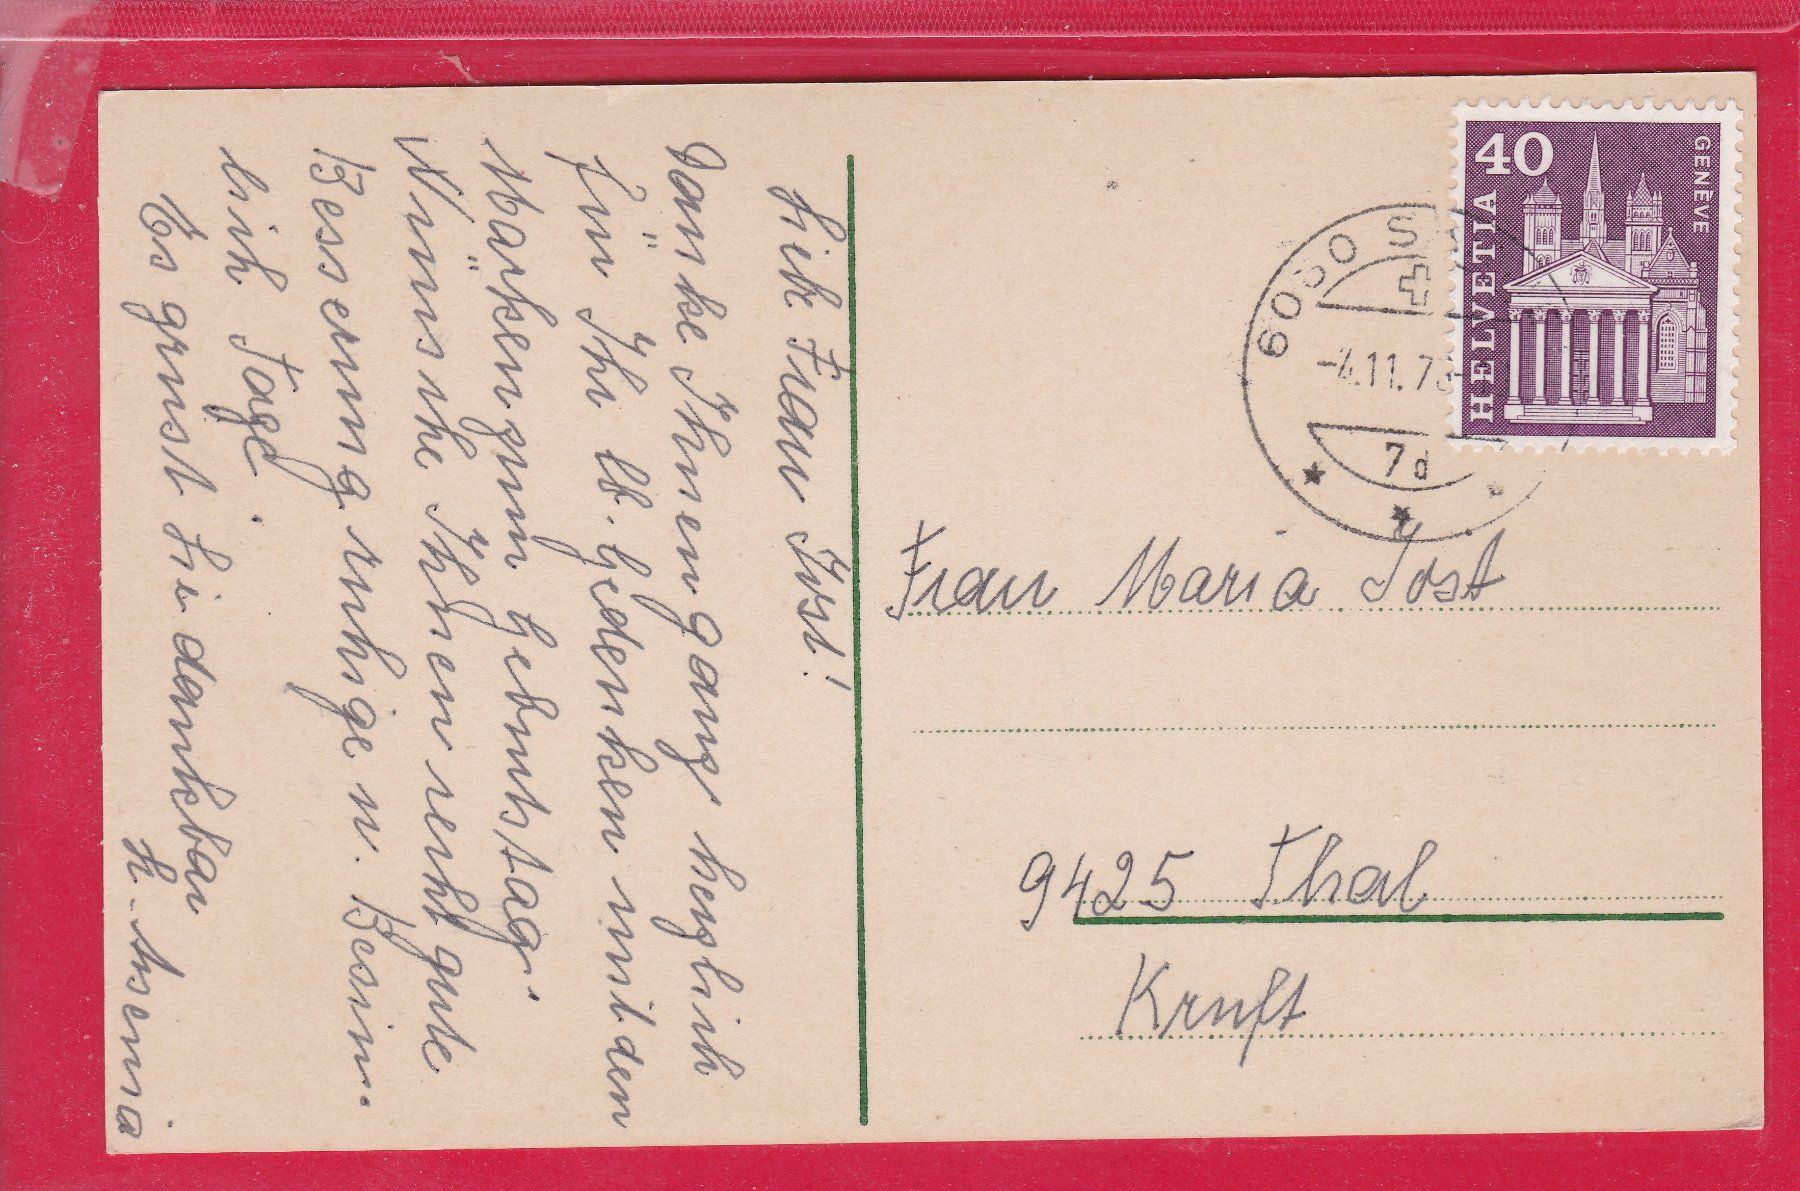 Liebe Frau Jost!
Danke Ihnen ganz herzlich
für Ihr lb. Gedenken mit den
Märken zum Geburtstag.
Wünsche Ihnen recht gute
Besserung ruhige u. Besinn-
lich Tage.
Es grüsst Sie dankbar
40
GENÈVE
HELVETIA
6060
-4.11.7
7d
Frau Maria Jost
9425 Thal
Kruft